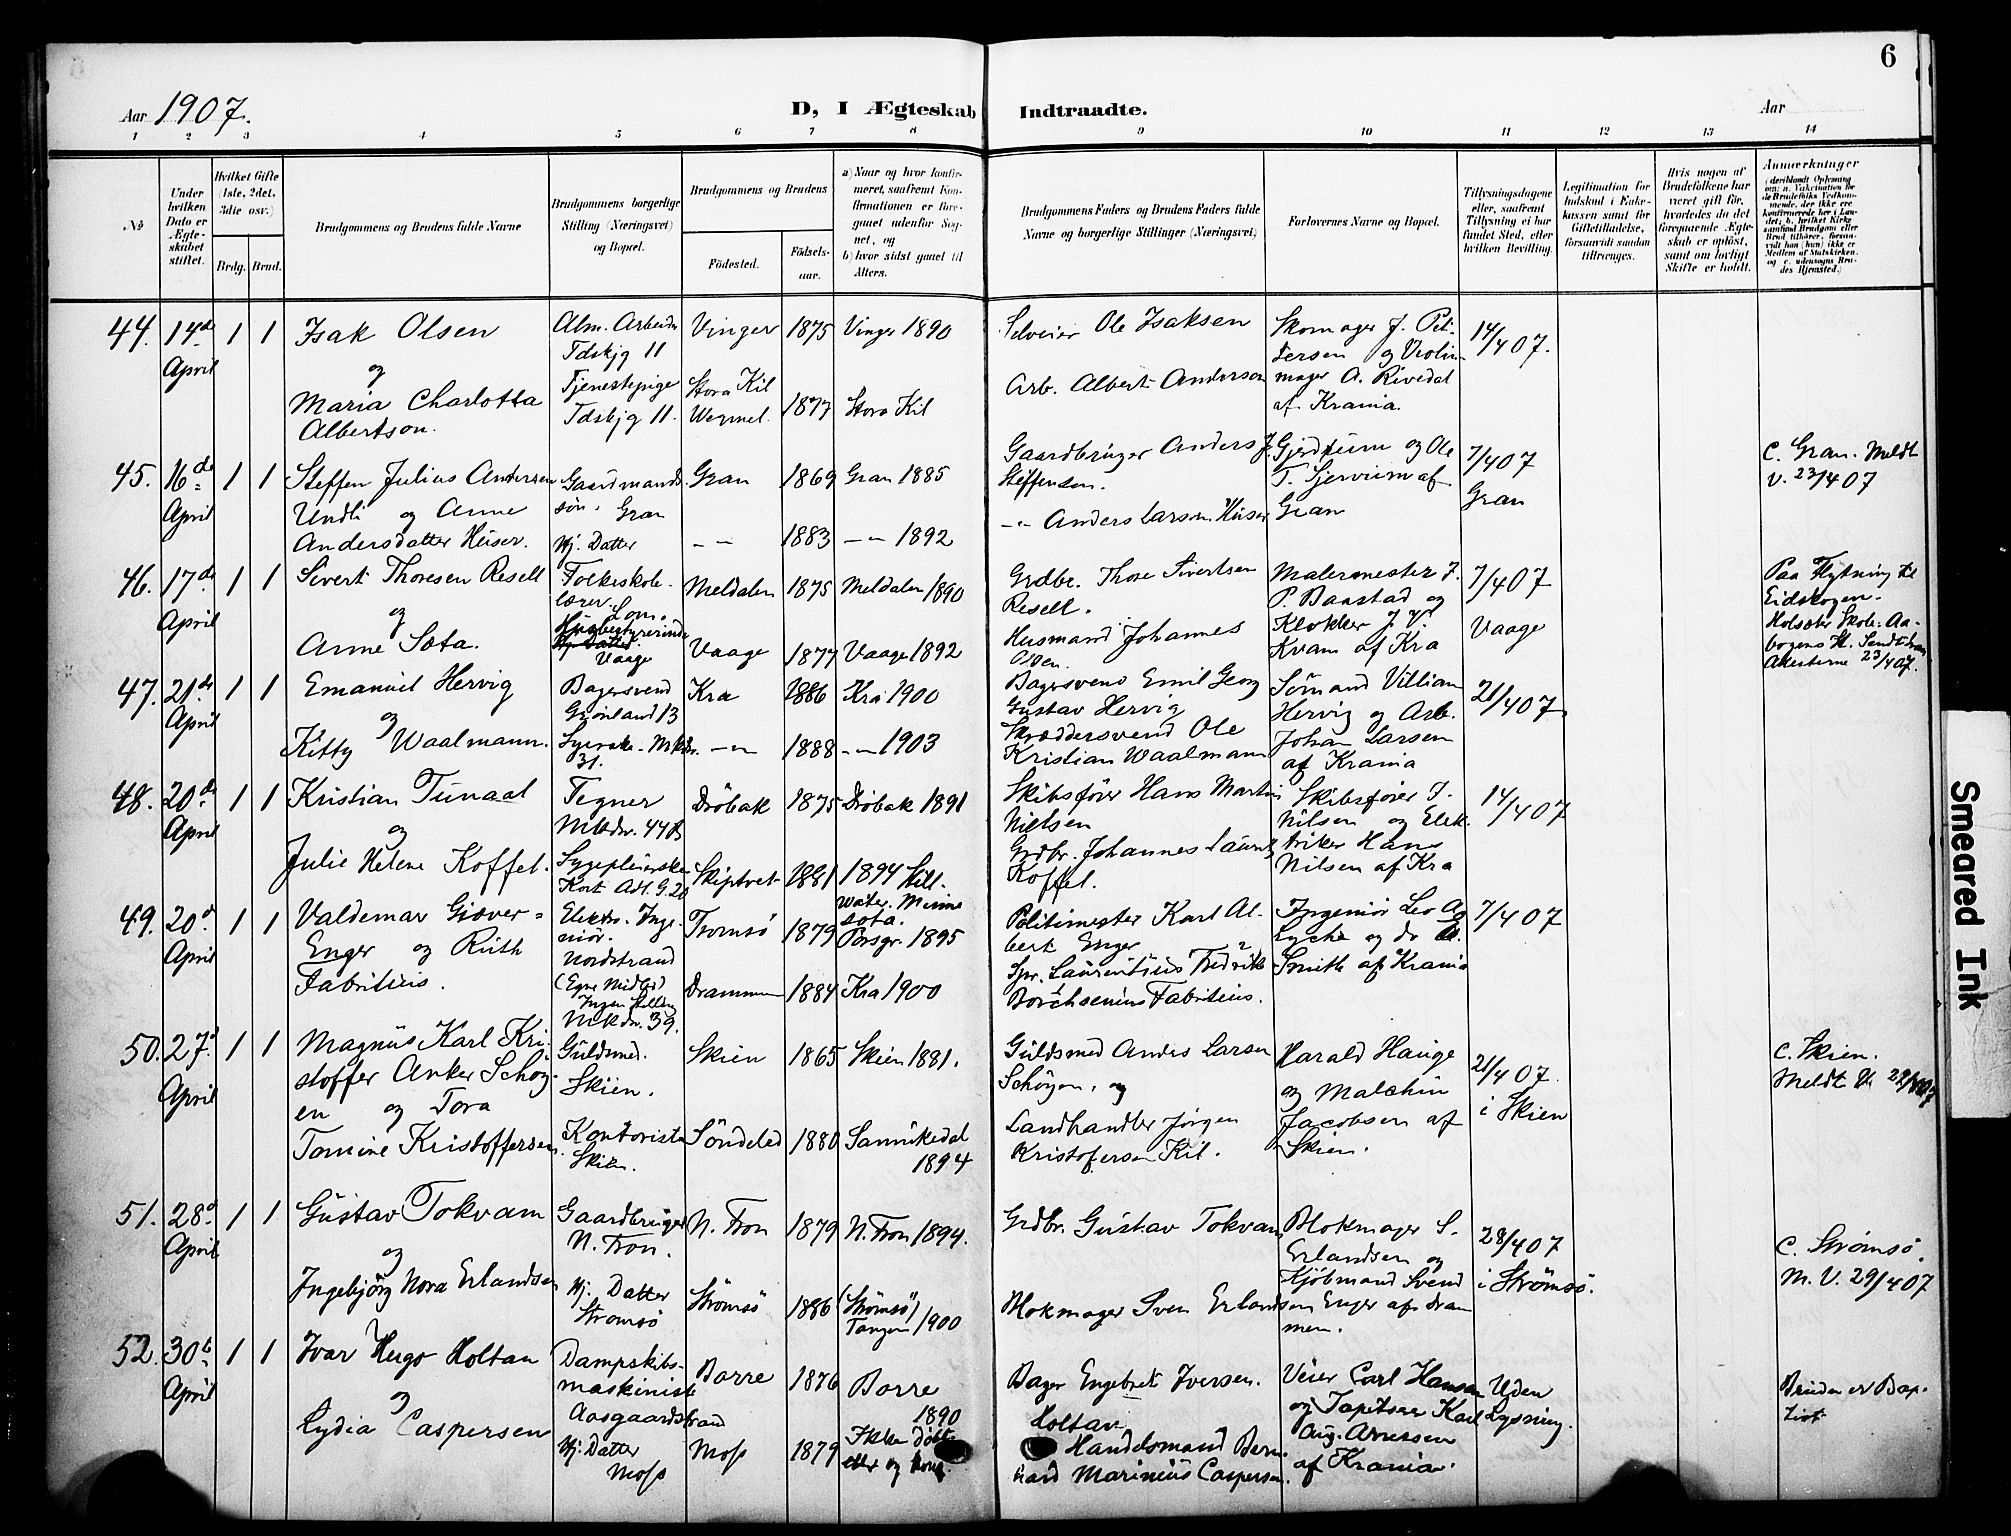 6
Aar 1907.
D, I Ægteskab Indtraadte.
Aar
1 2 3 4 5 6 7 8 9 10 11 12 13 14
No
Under hvilken Dato er Ægteskabet stiftet.
Hvilket Gifte (1ste, 2det, 3die osv.)
Brdg. Brud.
Brudgommens og Brudens fulde Navne
Brudgommens borgerlige Stilling (Næringsvei) og Bopæl.
Brudgommens og Brudens
Födested.
Födselsaar.
a) Naar og hvor konfirmeret, saafremt Konfirmationen er foregaaet udenfor Sognet, og
b) hvor sidst gaaet til Alters.
Brudgommens Faders og Brudens Faders fulde Navne og borgerlige Stillinger (Næringsvei)
Forlovernes Navne og Bopæl.
Tillysningsdagene eller, saafremt Tillysning ei har fundet Sted, efter hvilken Bevilling.
Legitimation for Indskud i Enkekassen samt for Giftetilladelse, forsaavidt saadan tiltrænges.
Hvis nogen af Brudefolkene har været gift før, hvorledes da det foregaaende Ægteskab er oplöst, samt om lovligt Skifte er holdt.
Anmærkninger
44. 14de April 1 1
Isak Olsen
og
Maria Charlotta
Albertson.
Alm. Arbeider
Tdskjg 11
Tjenestepige
Tdskjg 11.
Vinger 1875 Vinger 1890
Stora Kil
1877 Stora Kil
Selveier Ole Isaksen
Arb. Albert Anderson
Skomager J. Pettersen og Violinmager A. Rivedal
af Krania.
14/4 07.
45. 16de April 1 1
Steffen Julius Andersen
Undli og Anne
Andersdatter Huser.
Gaardmandssøn. Gran
Hj. Datter
Gran 1869 Gran 1885
-"- 1883 -"- 1892
Gaardbruger Anders J.
Steffensen.
-"- Anders Larsen Huser
og Ole
af
Gran
7/4 07
Gran
C. Gran. Meldt
v. 23/4 07
46. 17de April 1 1
Sivert Thoresen Resell
og
Anne Sota.
Folkeskolelærer. Lom.
Husbestyrerinde
Vaage
Meldalen 1875 Meldalen 1890
Vaage 1877 Vaage 1892
Grdbr. Thore Sivertsen
Resell.
Husmand Johannes
Olsen.
Malermester J.
P. Baastad og
Klokker J. V.
Kvam af Kra
7/4 07
Vaage
Paa Flytning til
Eidskogen.
23/4 07.
47. 21de April 1 1
Emanuel Hervig
og
Kitty Waalmann.
Bagersvend
Grønland 13
Syerske. Mkdv.
31.
Kra 1886 Kra 1900
-"- 1888 -"- 1903
Bagersvend Emil Georg
Gustav Hervig
Skræddersvend Ole
Kristian Waalmann
Sömand Villiam
Hervig og Arb.
Johan Larsen
af Krania
21/4 07.
48. 20de April 1 1
Kristian Tunaal
og
Julie Helene Koffel.
Tegner
Mkdv. 44B
Sygepleierske
Kort Adl. G. 20
Dröbak 1875 Dröbak 1891
Skiptvet 1881 1894 Still-
water. Minnesota.
Skibsförer Hans Martin
Nielsen
Grdbr. Johannes Lauritz
Koffel.
Skibsförer J.
Nilsen og Elektriker Hans
Nilsen af Kra
14/4 07
49. 20de April 1 1
Valdemar Giæver=
Enger og Ruth
Fabritius.
Elektro. Ingeniör.
Nordstrand
(Egne Midler)
Ingen Stilling
Mkdv. 39.
Tromsö 1879 Porsgr. 1895
Drammen 1884 Kra 1900
Politimester Karl Albert Enger
Laurentius Fredrik
Borchsenius Fabritius.
Ingeniör Leo Ag
Lyche og do
Smith af Krania
7/4 07
50. 27de April 1 1
Magnus Karl Kristoffer Anker Schøyen og Tora
Tomine Kristoffersen.
Guldsmed.
Skien.
Kontorist
Skien.
Skien 1865 Skien 1881.
Söndeled 1880 Sannikedal
1894
Guldsmed Anders Larsen
Schøyen, og
Landhandler Jørgen
Kristofersen Kil.
Harald Hauge
og Malchin
Jacobsen af
Skien.
21/4 07.
i Skien
C. Skien.
Meldt V.
51. 28de April 1 1
Gustav Tokvam
og
Ingebjörg Nora Erlandsen
Gaardbruger
N. Fron.
Hj. Datter
Strømsö
N. Fron 1879 N. Fron 1894.
Strømsö 1886 (Strömsö)
Tangen 1900
Grdbr. Gustav Tokvam
Blokmager Sven Erlandsen
Blokmager S.
Erlandsen og
Kjöbmand Svend
Enger af Drammen.
28/4 07
i Strömsö.
C. Strømsö.
M. V. 29/4 07
52. 30te April 1 1
Ivar Hugo Holtan
og
Lydia Caspersen
Dampskibsmaskinist
Aasgaardstrand
Hj. Datter
Moss
Borre 1876 Borre
1890
Moss 1879 Ikke döbt
eller og konf.
Bager Engebret Iversen.
Holtan
Handelsmand Bernhard Marinius Caspersen.
Veier Carl Hansen
og Tapetserer Karl
Aug. Arnesen
af Krania.
Uden
Lysning.
Bruden er Baptist
Smeared Ink